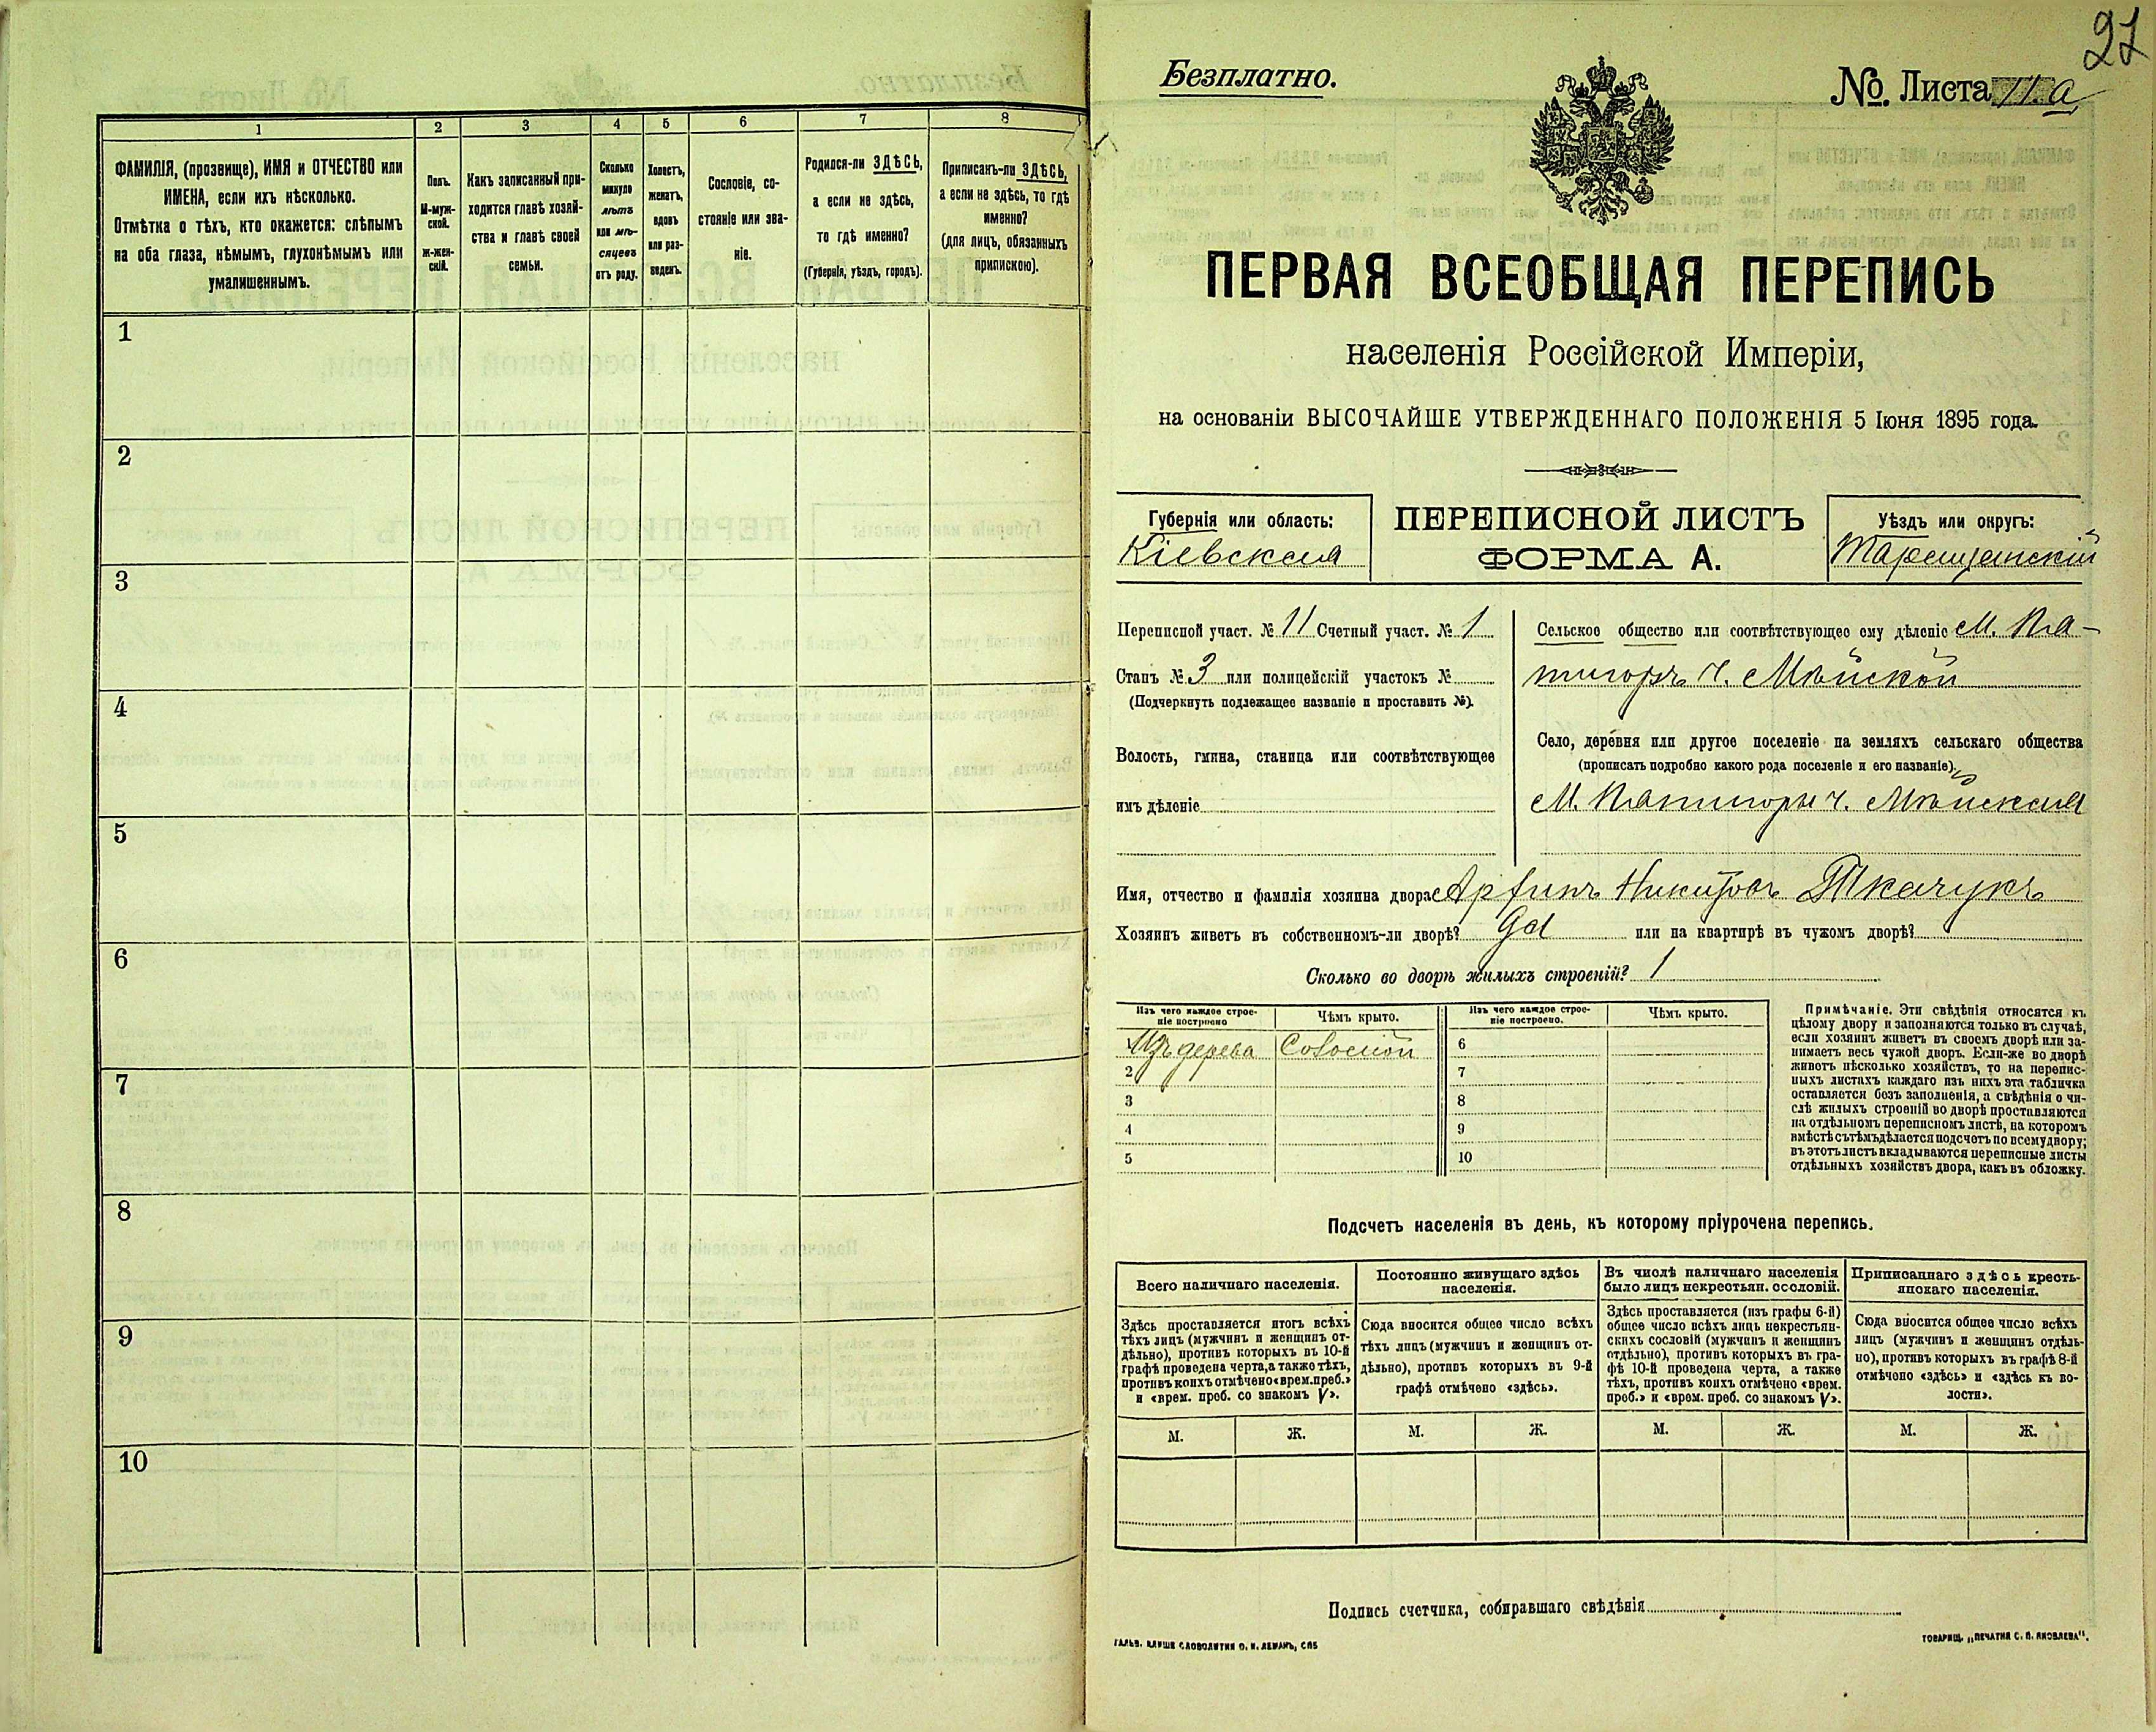 1
2
3
4
5
6
7
8
ФАМИЛІЯ, (прозвище), ИМЯ и ОТЧЕСТВО или
ИМЕНА, если ихъ нѣсколько.
Отмѣтка о тѣхъ, кто окажется: слѣпымъ
на оба глаза, нѣмымъ, глухонѣмымъ или
умалишеннымъ.
Полъ.
М-муж-
ской.
ж-жен-
скій.
Какъ записанный при-
ходится главѣ хозяй-
ства и главѣ своей
семьи.
Сколько
минуло
лѣтъ
или мѣ-
сяцевъ
отъ роду.
Холостъ,
женатъ,
вдовъ
или раз-
веденъ.
Сословіе, со-
стояніе или зва-
ніе.
Родился-ли ЗДѢСЬ,
а если не здѣсь,
то гдѣ именно?
(Губернія, уѣздъ, городъ).
Приписанъ-ли ЗДѢСЬ,
а если не здѣсь, то гдѣ
именно?
(для лицъ, обязанныхъ
припискою).
1
2
3
4
5
6
7
8
9
10
27
Безплатно.
№ Листа 11.а
ПЕРВАЯ ВСЕОБЩАЯ ПЕРЕПИСЬ
населенія Россійской Имперіи,
на основаніи ВЫСОЧАЙШЕ УТВЕРЖДЕННАГО ПОЛОЖЕНІЯ 5 Іюня 1895 года.
Губернія или область:
Кіевская
ПЕРЕПИСНОЙ ЛИСТЪ
ФОРМА А.
Уѣздъ или округъ:
Таращанскій
Переписной участ. № 11 Счетный участ. № 1
Станъ № 3 или полицейскій участокъ №
(Подчеркнуть подлежащее названіе и проставить №).
Волость, гмина, станица или соотвѣтствующее
имъ дѣленіе
Сельское общество или соотвѣтствующее ему дѣленіе М. Пя-
тигоръ ч.
Село, деревня или другое поселеніе на земляхъ сельскаго общества
(прописать подробно какого рода поселеніе и его названіе).
М. Пятигоры ч.
Имя, отчество и фамилія хозяина двора Никитовъ Ткачукъ
Хозяинъ живетъ въ собственномъ-ли дворѣ? Да или на квартирѣ въ чужомъ дворѣ?
Сколько во дворѣ жилыхъ строеній? 1
Изъ чего каждое строе-
ніе построено
Чѣмъ крыто.
Изъ чего каждое строе-
ніе построено.
Чѣмъ крыто.
1 Изъ дерева Соломой
2
3
4
5
6
7
8
9
10
Примѣчаніе. Эти свѣдѣнія относятся къ
цѣлому двору и заполняются только въ случаѣ,
если хозяинъ живетъ въ своемъ дворѣ или за-
нимаетъ весь чужой дворъ. Если-же во дворѣ
живетъ нѣсколько хозяйствъ, то на перепис-
ныхъ листахъ каждаго изъ нихъ эта табличка
оставляется безъ заполненія, а свѣдѣнія о чи-
слѣ жилыхъ строеній во дворѣ проставляются
на отдѣльномъ переписномъ листѣ, на которомъ
вмѣстѣ съ тѣмъ дѣлается подсчетъ по всему двору;
въ этотъ листъ вкладываются переписные листы
отдѣльныхъ хозяйствъ двора, какъ въ обложку.
Подсчетъ населенія въ день, къ которому пріурочена перепись.
Всего наличнаго населенія.
Здѣсь проставляется итогъ всѣхъ
тѣхъ лицъ (мужчинъ и женщинъ от-
дѣльно), противъ которыхъ въ 10-й
графѣ проведена черта, а также тѣхъ,
противъ коихъ отмѣчено «врем. преб.»
и «врем. преб. со знакомъ V».
Постоянно живущаго здѣсь
населенія.
Сюда вносится общее число всѣхъ
тѣхъ лицъ (мужчинъ и женщинъ от-
дѣльно), противъ которыхъ въ 9-й
графѣ отмѣчено «здѣсь».
Въ числѣ наличнаго населенія
было лицъ некрестьян. сословій.
Здѣсь проставляется (изъ графы 6-й)
общее число всѣхъ лицъ некрестьян-
скихъ сословій (мужчинъ и женщинъ
отдѣльно), противъ которыхъ въ гра-
фѣ 10-й проведена черта, а также
тѣхъ, противъ коихъ отмѣчено «врем.
преб.» и «врем. преб. со знакомъ V».
Приписаннаго здѣсь кресть-
янскаго населенія.
Сюда вносится общее число всѣхъ
лицъ (мужчинъ и женщинъ отдѣль-
но), противъ которыхъ въ графѣ 8-й
отмѣчено «здѣсь» и «здѣсь къ во-
лости».
М. Ж. М. Ж. М. Ж. М. Ж.
Подпись счетчика, собиравшаго свѣдѣнія
ГАЛЬВ. КЛИШЕ СЛОВОЛИТНИ О. И. ЛЕМАНЪ, СПБ
ТОВАРИЩ. „ПЕЧАТНЯ С. П. ЯКОВЛЕВА".